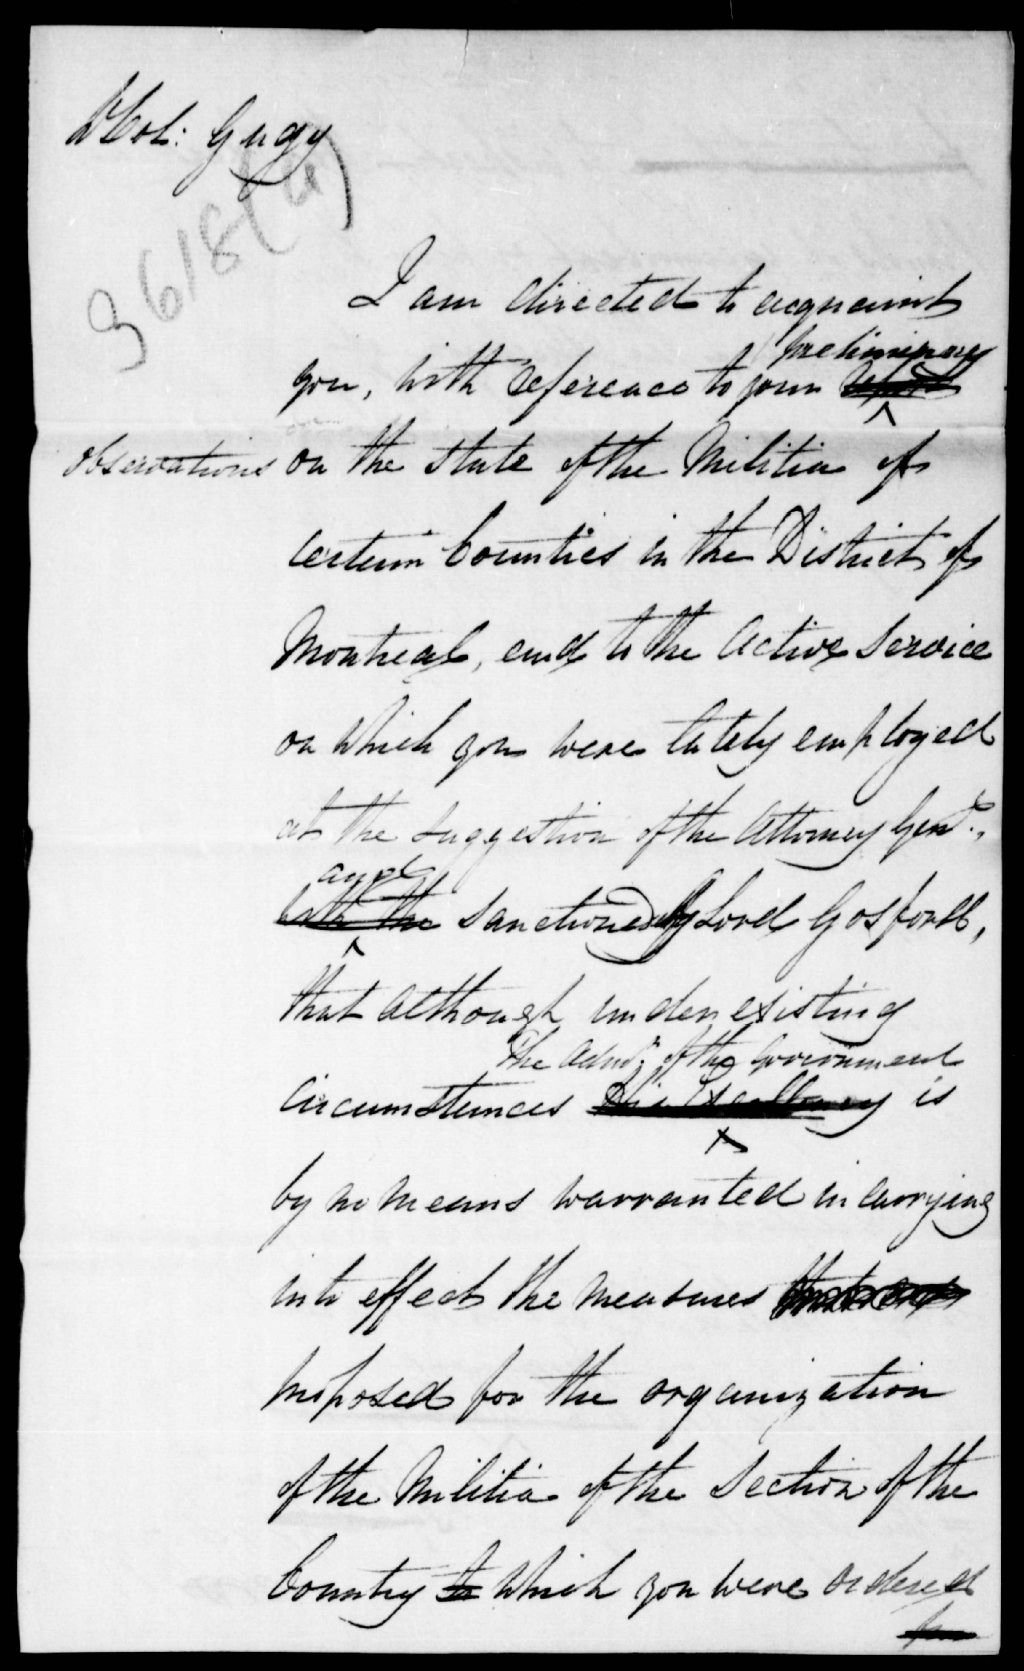 Lt Col: Gugy
3618(4)
I am directed to acquaint
preliminary
you, with reference to your
observations on the state of the Militia of
certain Counties in the District of
Montreal, and to the active service
on which you were lately employed
at the suggestion of the Attorney Genl.,
and
with the sanctioned by Lord Gosford,
that although under existing
The Admr. of the Government
circumstances His Excellency is
by no means warranted in carrying
into effect the measures
proposed for the organization
of the Militia of the Section of the
Country to which you were ordered